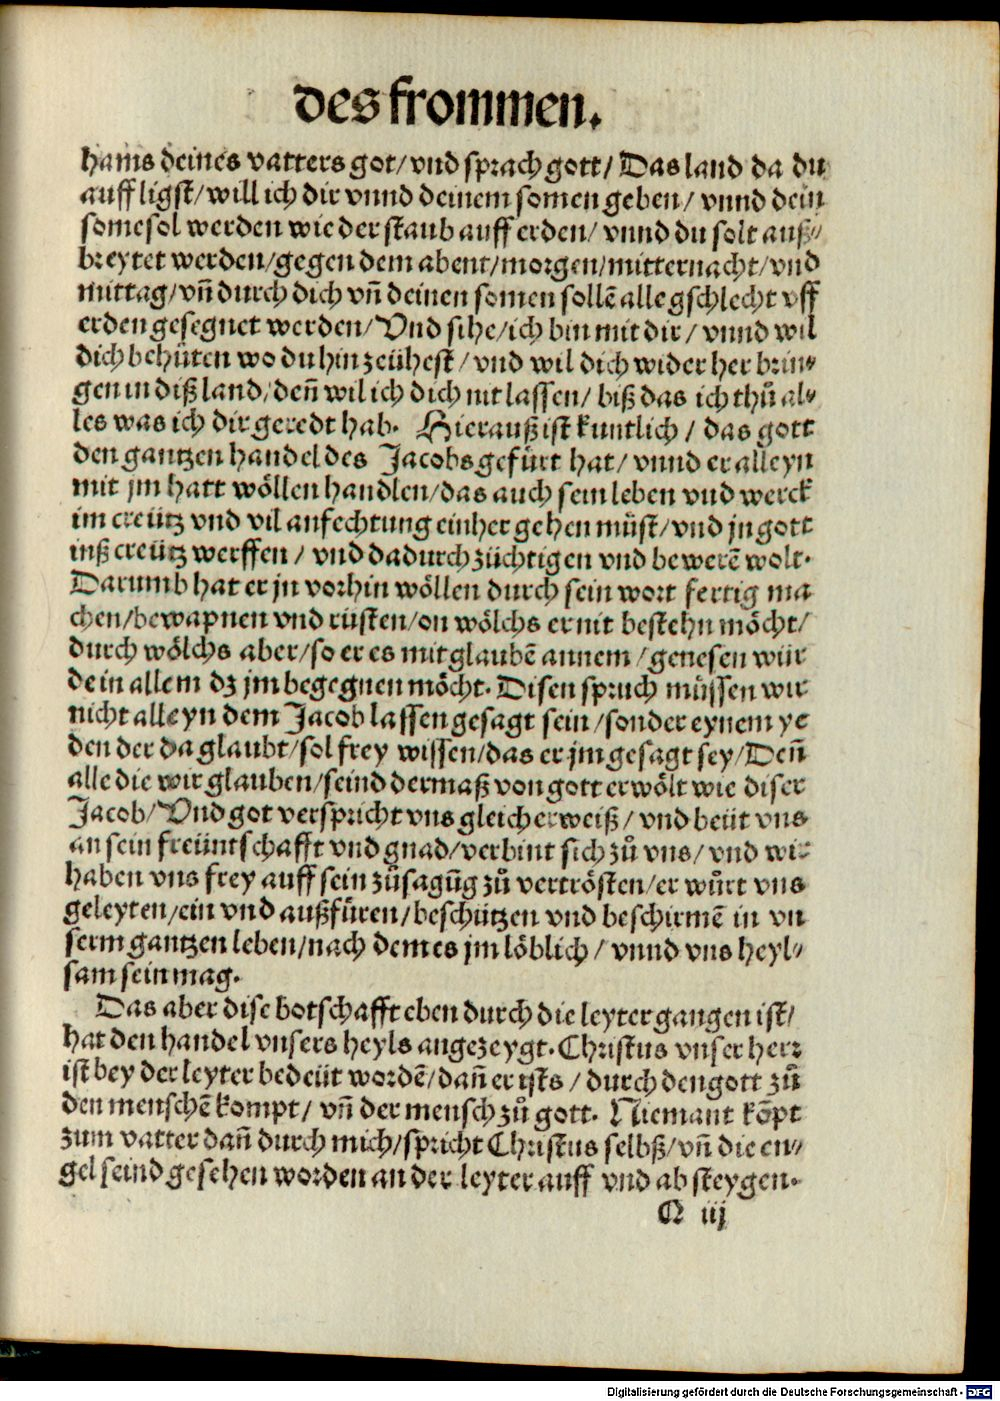 des frommen.
hams deines vatters got/vnd sprach gott/Das land da du
auff ligst/will ich dir vnnd deinem somen geben/ vnnd dein
some sol werden wie der staub auff erden/ vnnd du solt auß⸗
breytet werden/gegen dem abent/morgen/mitternacht/vnd
mittag/vñ durch dich vñ deinen somen sollẽ alle gschlecht vff
erden gesegnet werden/Vnd sihe/ich bin mit dir/ vnnd wil
dich behüten wo du hin zeühest/ vnd wil dich wider her brin⸗
gen in diß land/deñ wil ich dich nit lassen/ biß das ich thů al⸗
les was ich dir geredt hab. Hierauß ist kuntlich/ das gott
den gantzen handel des Jacobs gefürt hat/ vnnd er alleyn
mit jm hatt wöllen handlen/das auch sein leben vnd werck
im creütz vnd vil anfechtung einher gehen müst/vnd jn gott
inß creütz werffen/ vnd dadurch züchtigen vnd bewerẽ wolt.
Darumb hat er jn vorhin wöllen durch sein wort fertig ma
chen/bewapnen vnd rüsten/on wölchs er nit bestehn möcht/
durch wölchs aber/so er es mit glaubẽ annem/genesen wür
de in allem dz jm begegnen möcht. Disen spruch müssen wir
nicht alleyn dem Jacob lassen gesagt sein/sonder eynem ye
den der da glaubt/sol frey wissen/das er jm gesagt sey/Deñ
alle die wir glauben/seind dermaß von gott erwölt wie diser
Jacob/Vnd got verspricht vns gleicherweiß/ vnd beüt vns
an sein freüntschafft vnd gnad/verbint sich zů vns/ vnd wir
haben vns frey auff sein zůsagũg zů vertrösten/er wůrt vns
geleyten/ein vnd außfüren/beschützen vnd beschirmẽ in vn
serm gantzen leben/nach dem es jm löblich/ vnnd vns heyl⸗
sam sein mag.
Das aber dise botschafft eben durch die leyter gangen ist/
hat den handel vnsers heyls angezeygt. Christus vnser herr
ist bey der leyter bedeüt wordẽ/dañ er ists/ durch den gott zů
den menschẽ kompt/ vñ der mensch zů gott. Niemant kõpt
zum vatter dañ durch mich/spricht Christus selbß/vñ die en⸗
gel seind gesehen worden an der leyter auff vnd ab steygen.
Q iij
Digitalisierung gefördert durch die Deutsche Forschungsgemeinschaft - DFG